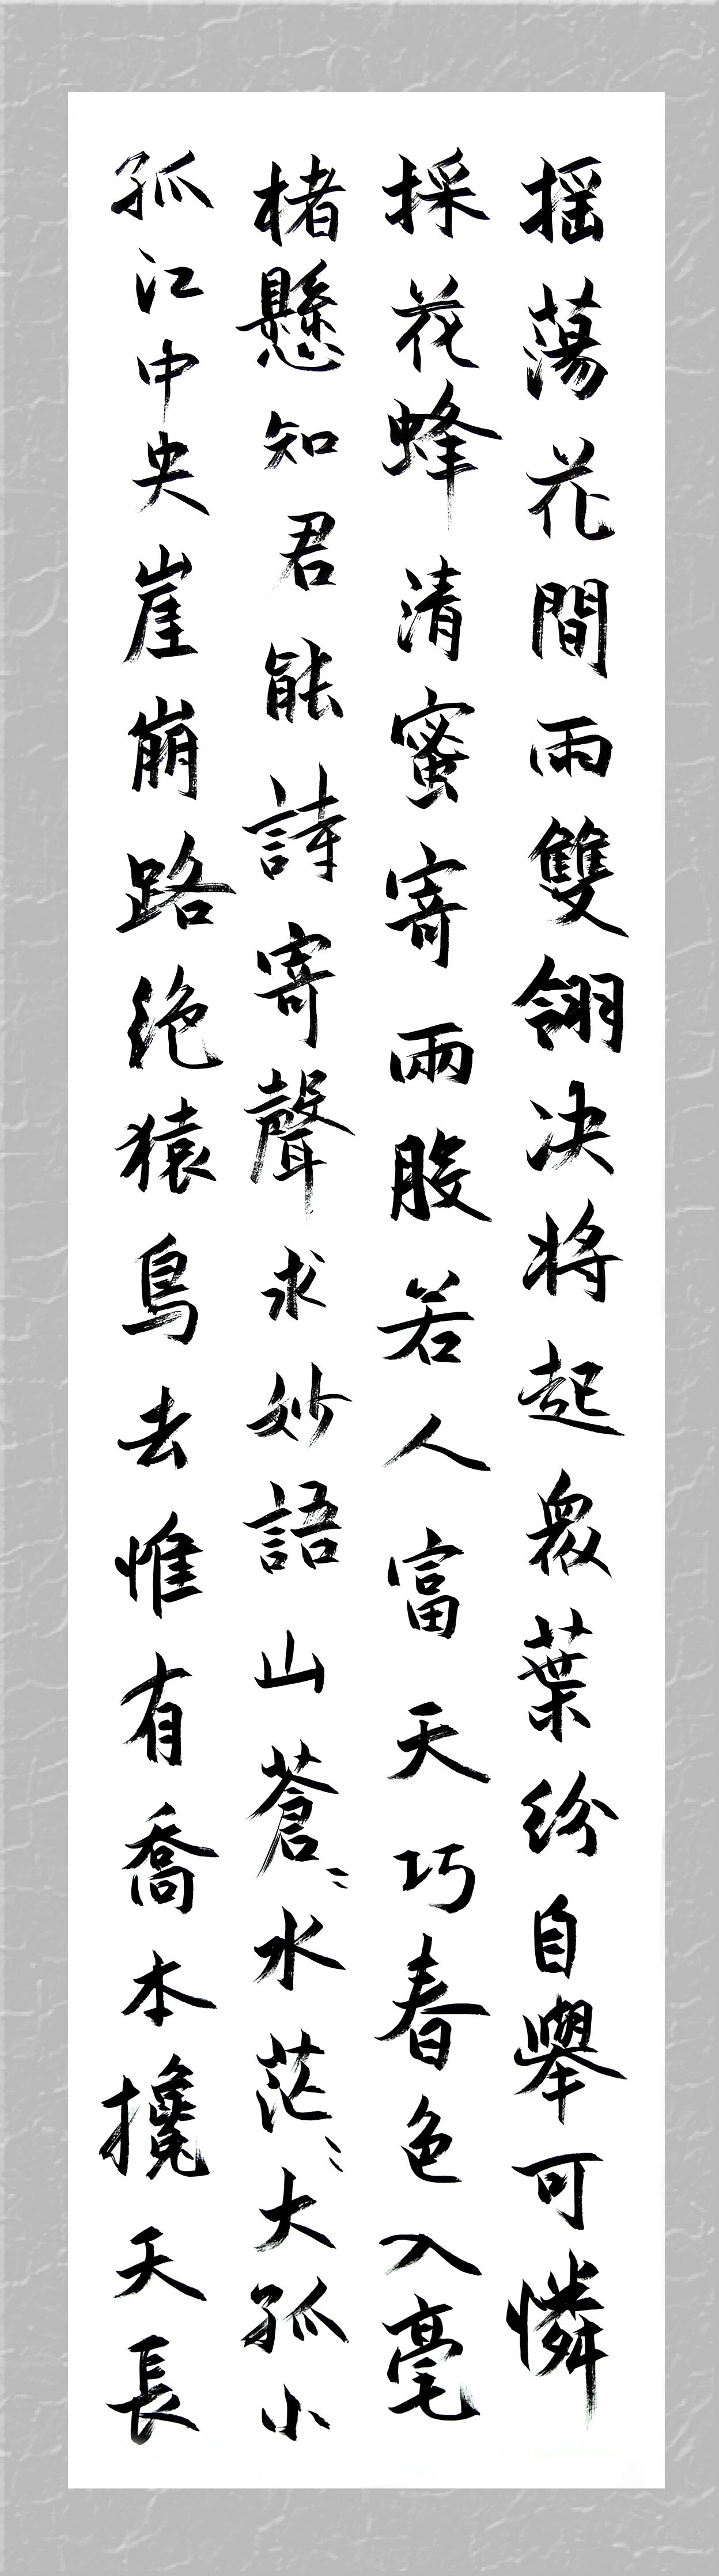 摇蕩花間雨雙翎决將起衆葉紛自舉可憐
採花蜂清蜜寄兩股若人富天巧春色入毫
楮懸知君能詩寄聲求妙語山蒼〻水茫〻大孤小
孤江中央崖崩路绝猿鳥去惟有喬本攙天長